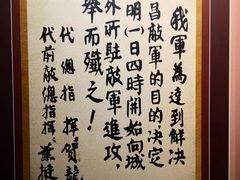 我軍為達到解決
昌敵軍的目的決定
明一日四時開始向城
外所駐敵軍進攻，
舉而殲之！
代總指揮賀龍
代前敵總指揮葉挺